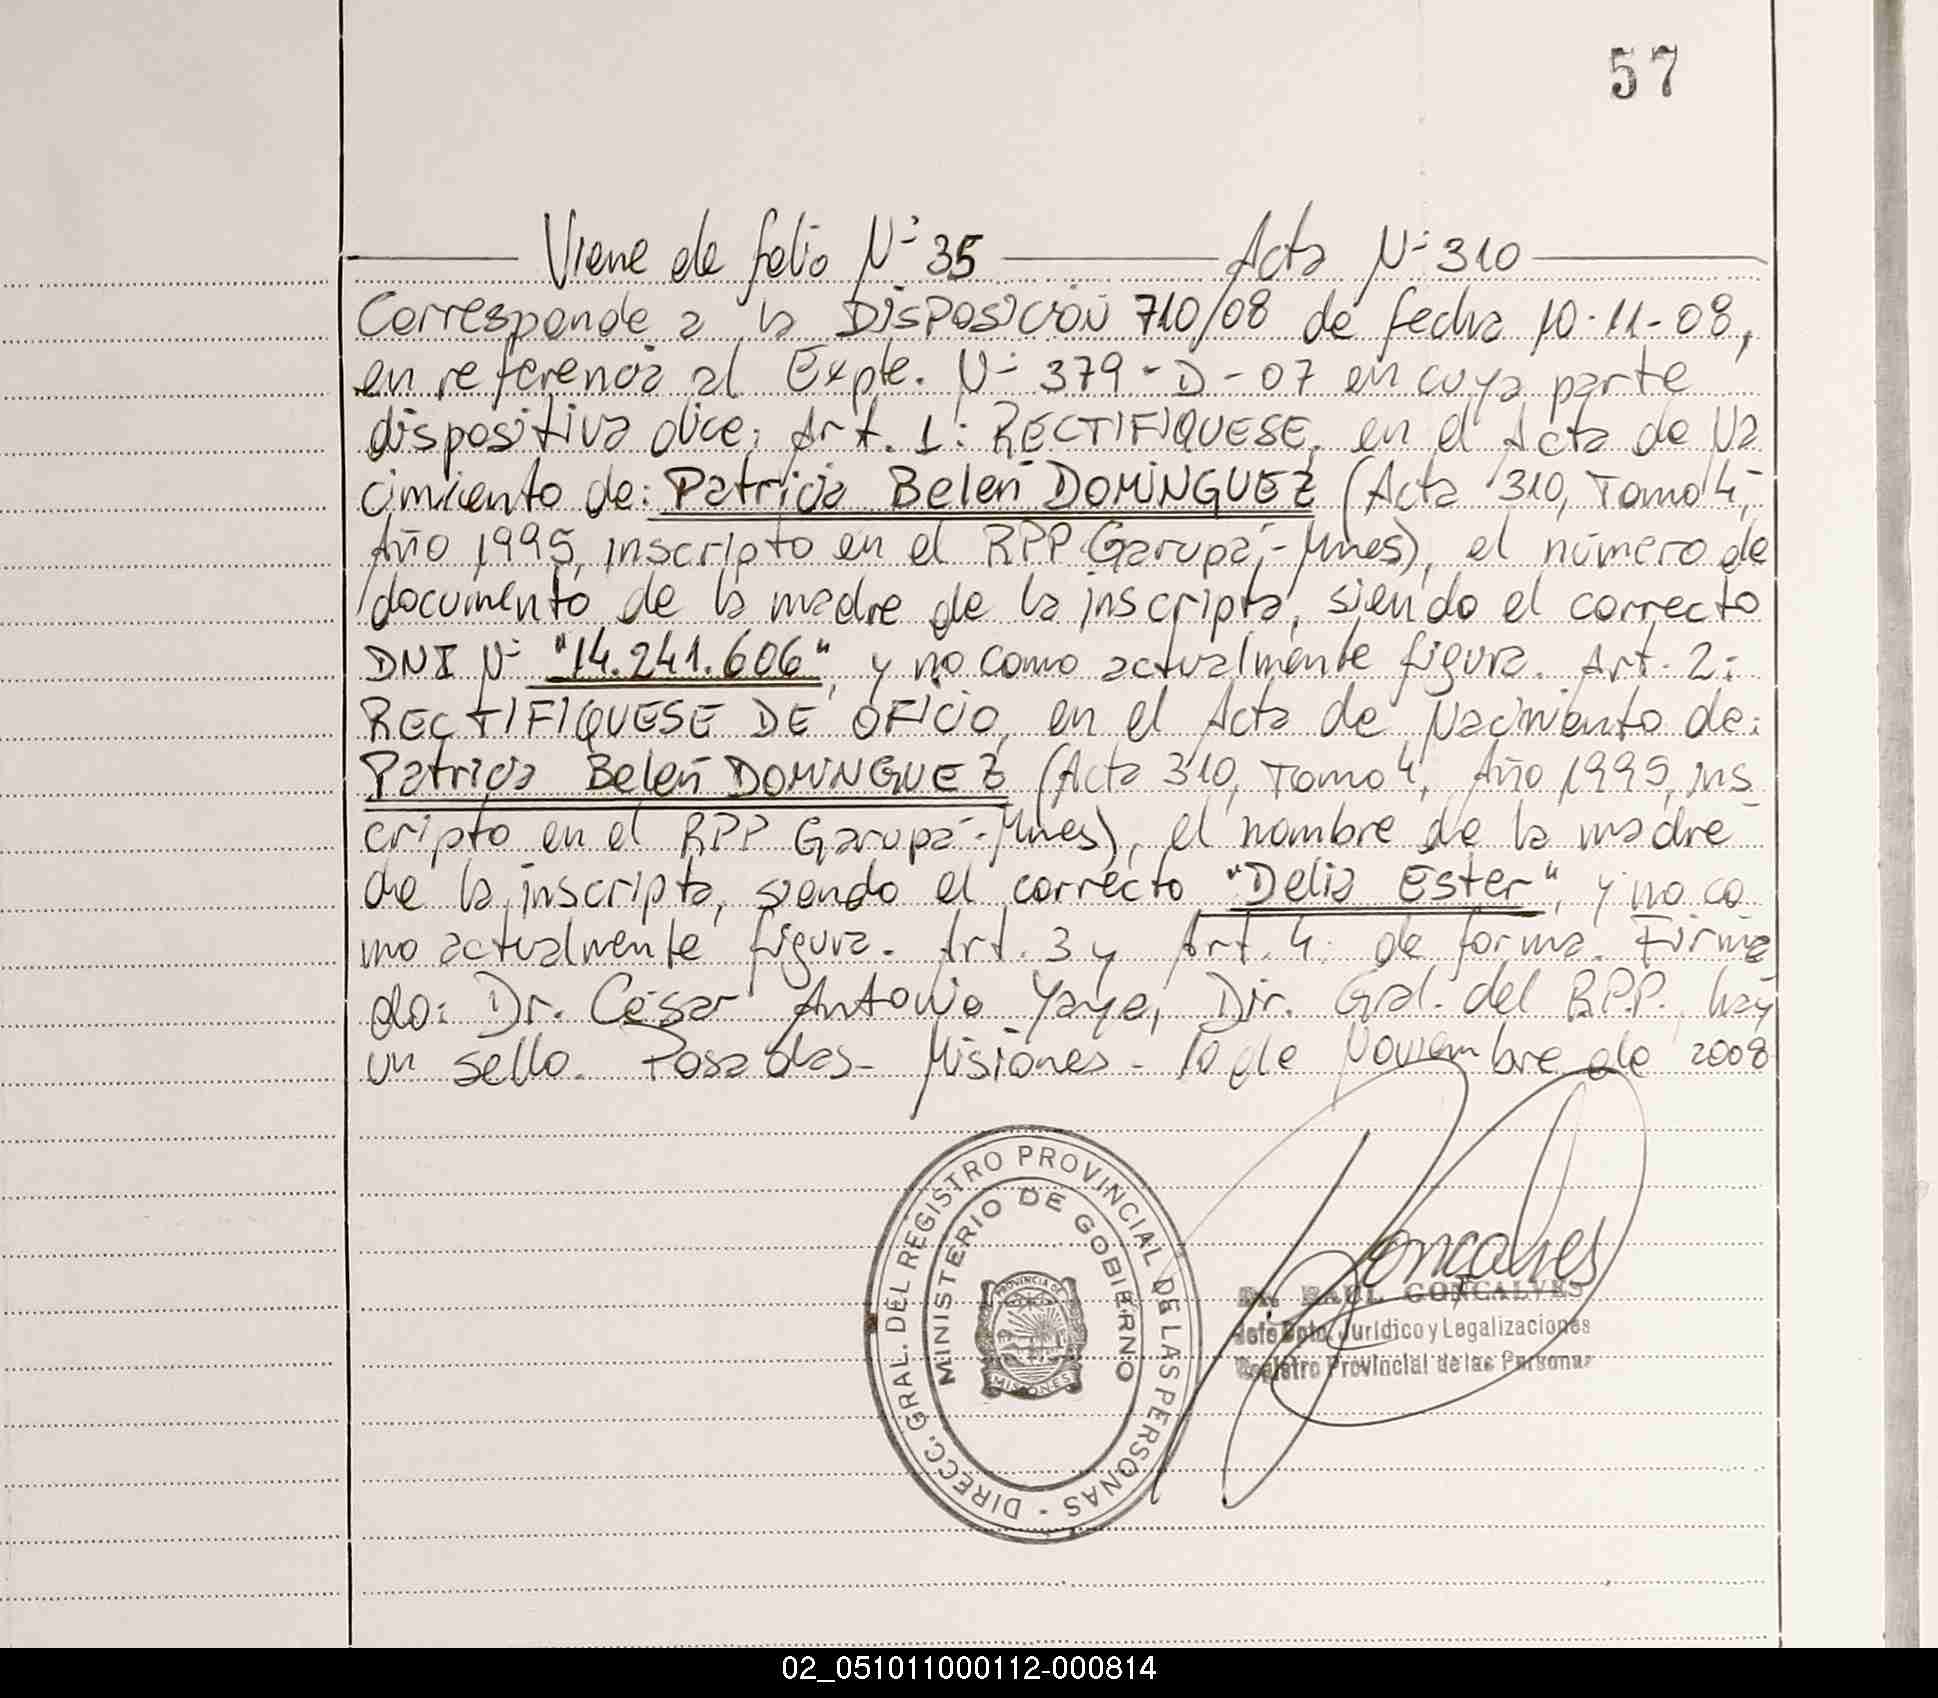 57
Viene de folio Nº 35 Acta Nº 310
Corresponde a la DISPOSICIÓN 710/08 de fecha 10-11-08,
en referencia al Expte. Nº 379-D-07 en cuya parte
dispositiva dice: Art. 1: RECTIFIQUESE, en el Acta de Na
cimiento de: Patricia Belén DOMINGUEZ (Acta 310, Tomo 4,
Año 1995, inscripto en el RPP Garupá-Mnes), el número de
documento de la madre de la inscripta, siendo el correcto
DNI Nº "14.241.606", y no como actualmente figura. Art. 2:
RECTIFIQUESE DE OFICIO, en el Acta de Nacimiento de:
Patricia Belén DOMINGUEZ (Acta 310, Tomo 4, Año 1995, ins
cripto en el RPP Garupá-Mnes), el nombre de la madre
de la inscripta, siendo el correcto "Delia Ester", y no co
mo actualmente figura. Art. 3 y Art. 4: de forma. Firma
do: Dr. César Antonio Yaya, Dir. Gral. del R.P.P., hay
un sello. Posadas- Misiones- 10 de Noviembre de 2008
DIRECC. GRAL. DEL REGISTRO PROVINCIAL DE LAS PERSONAS -
MINISTERIO DE GOBIERNO
PROVINCIA DE
MISIONES
Gonçalves
Dr. RAUL GONÇALVES
Jefe Dpto. Jurídico y Legalizaciones
Registro Provincial de las Personas
02_051011000112-000814